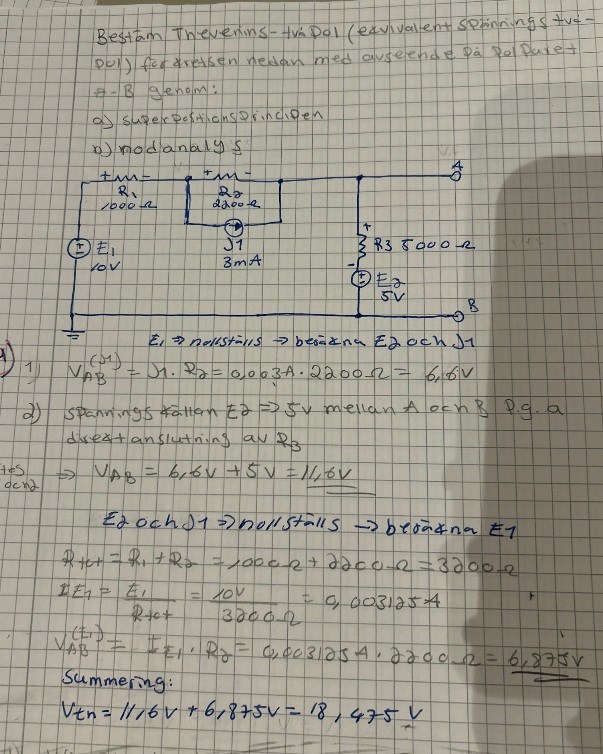 Bestäm Thevenins-två Pol (ekvivalent spännings två-
pol) för kretsen nedan med avseende på polparet
A-B genom:
a) superpositionsprincipen
b) nodanalys
+ -
+ -
A
R1
1000 Ω
R2
2200 Ω
J1
3mA
+
R3 5000 Ω
-
E1
10V
E2
5V
B
E1 => nollställs -> beräkna E2 och J1
a) 1) VAB(J1) = J1 · R2 = 0,003A · 2200Ω = 6,6V
2) spänningskällan E2 => 5V mellan A och B p.g.a
direktanslutning av R3
och 2 => VAB = 6,6V + 5V = 11,6V
E2 och J1 => nollställs -> beräkna E1
Rtot = R1 + R2 = 1000Ω + 2200Ω = 3200Ω
IE1 = E1/Rtot = 10V/3200Ω = 0,003125A
VAB(E1) = IE1 · R2 = 0,003125A · 2200Ω = 6,875V
Summering:
Vth = 11,6V + 6,875V = 18,475 V